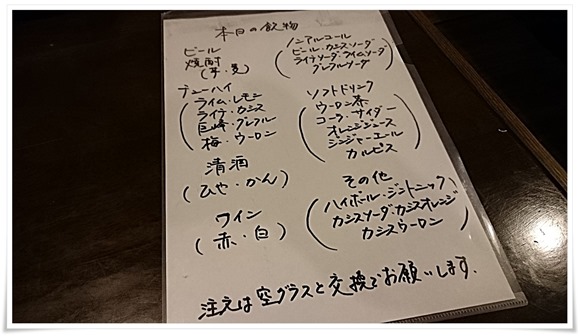 本日の飲物
ビール
焼酎
(芋・麦)
チューハイ
(ライム・レモン
ライチ・カシス
巨峰・グレフル
梅・ウーロン)
清酒
(ひや・かん)
ワイン
(赤・白)
ノンアルコール
(ビール・カシスソーダ
ライチソーダ・ライムソーダ
グレフルソーダ)
ソフトドリンク
(ウーロン茶
コーラ・サイダー
オレンジジュース
ジンジャーエール
カルピス)
その他
(ハイボール・ジントニック
カシスソーダ・カシスオレンジ
カシスウーロン)
注文は空グラスと交換でお願いします.